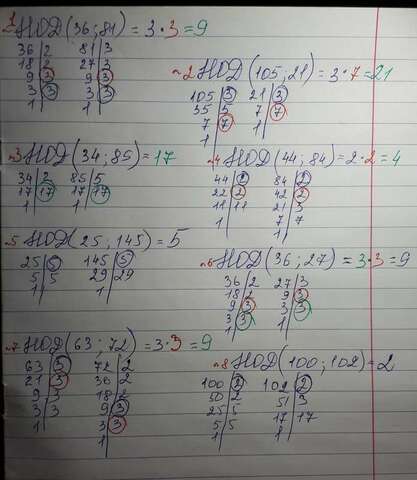 1 НОД(36;81)=3·3=9
36|2 81|3
18|2 27|3
9|3 9|3
3|3 3|3
1| 1|
2 НОД(105;21)=3·7=21
105|3 21|3
35|5 7|7
7|7 1|
1|
3 НОД(34;85)=17
34|2 85|5
17|17 17|17
1| 1|
4 НОД(44;84)=2·2=4
44|2 84|2
22|2 42|2
11|11 21|3
1| 7|7
1|
5 НОД(25;145)=5
25|5 145|5
5|5 29|29
1| 1|
6 НОД(36;27)=3·3=9
36|2 27|3
18|2 9|3
9|3 3|3
3|3 1|
1|
7 НОД(63;72)=3·3=9
63|3 72|2
21|3 36|2
9|3 18|2
3|3 9|3
1| 3|3
1|
8 НОД(100;102)=2
100|2 102|2
50|2 51|3
25|5 17|17
5|5 1|
1|